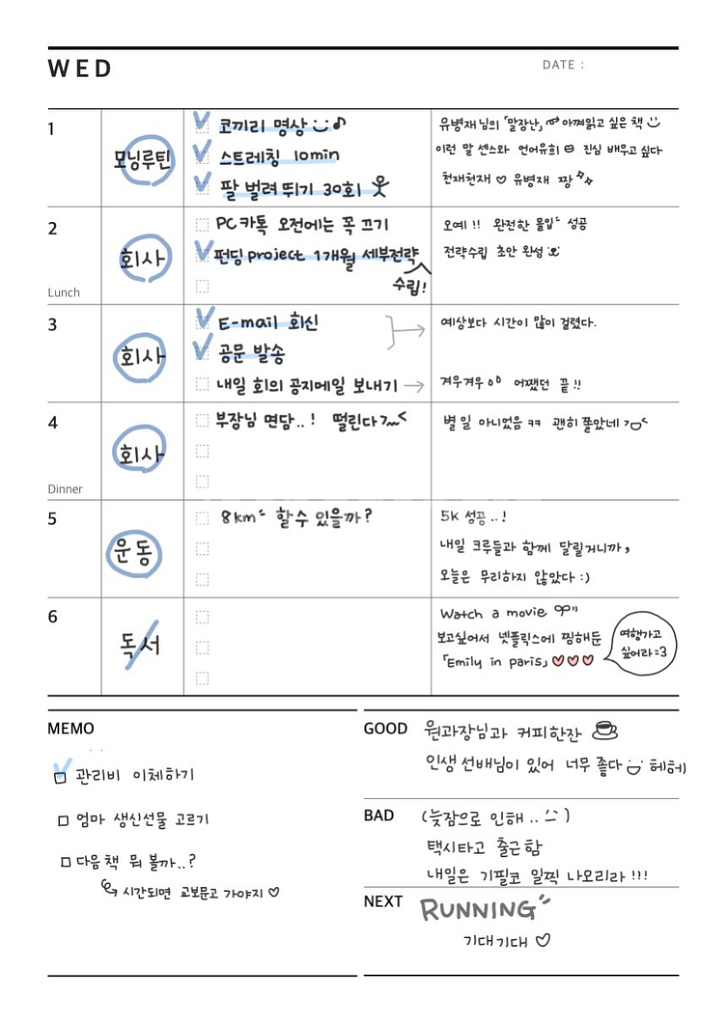 WED
DATE :
1
모닝루틴
코끼리 명상
스트레칭 10min
팔 벌려 뛰기 30회
유병재님의 「말장난」 아껴읽고 싶은 책
이런 말 센스와 언어유희 진심 배우고 싶다
천재천재 ♡ 유병재 짱
2
Lunch
회사
PC카톡 오전에는 꼭 끄기
펀딩 project 1개월 세부전략
수립!
오예!! 완전한 몰입 성공
전략수립 초안 완성
3
회사
E-mail 회신
공문 발송
내일 회의 공지메일 보내기 →
예상보다 시간이 많이 걸렸다.
겨우겨우 어쨌던 끝!!
4
Dinner
회사
부장님 면담..! 떨린다
별 일 아니었음 ㅋㅋ 괜히 쫄았네
5
운동
8km 할 수 있을까?
5K 성공..!
내일 크루들과 함께 달릴거니까,
오늘은 무리하지 않았다 :)
6
독서
Watch a movie
보고싶어서 넷플릭스에 찜해둔
「Emily in paris」 ♡♡♡
여행가고
싶어라=3
MEMO
관리비 이체하기
엄마 생신선물 고르기
다음 책 뭐 볼까..?
시간되면 교보문고 가야지 ♡
GOOD
원과장님과 커피한잔
인생 선배님이 있어 너무 좋다 헤헤)
BAD
(늦잠으로 인해.. )
택시타고 출근함
내일은 기필코 일찍 나오리라!!!
NEXT
RUNNING
기대기대 ♡